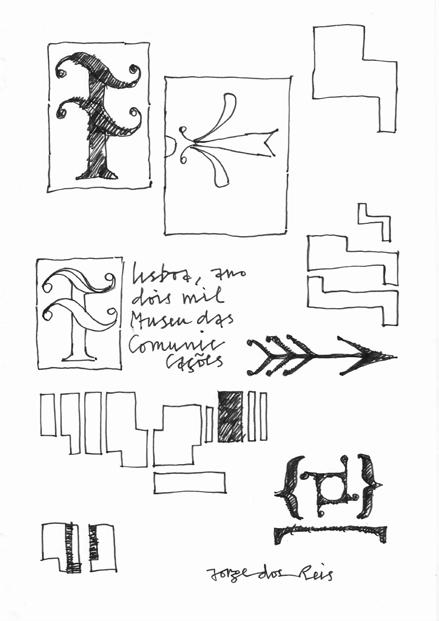 Lisboa, ano
dois mil
Museu das
Comunic
cações
Jorge dos Reis